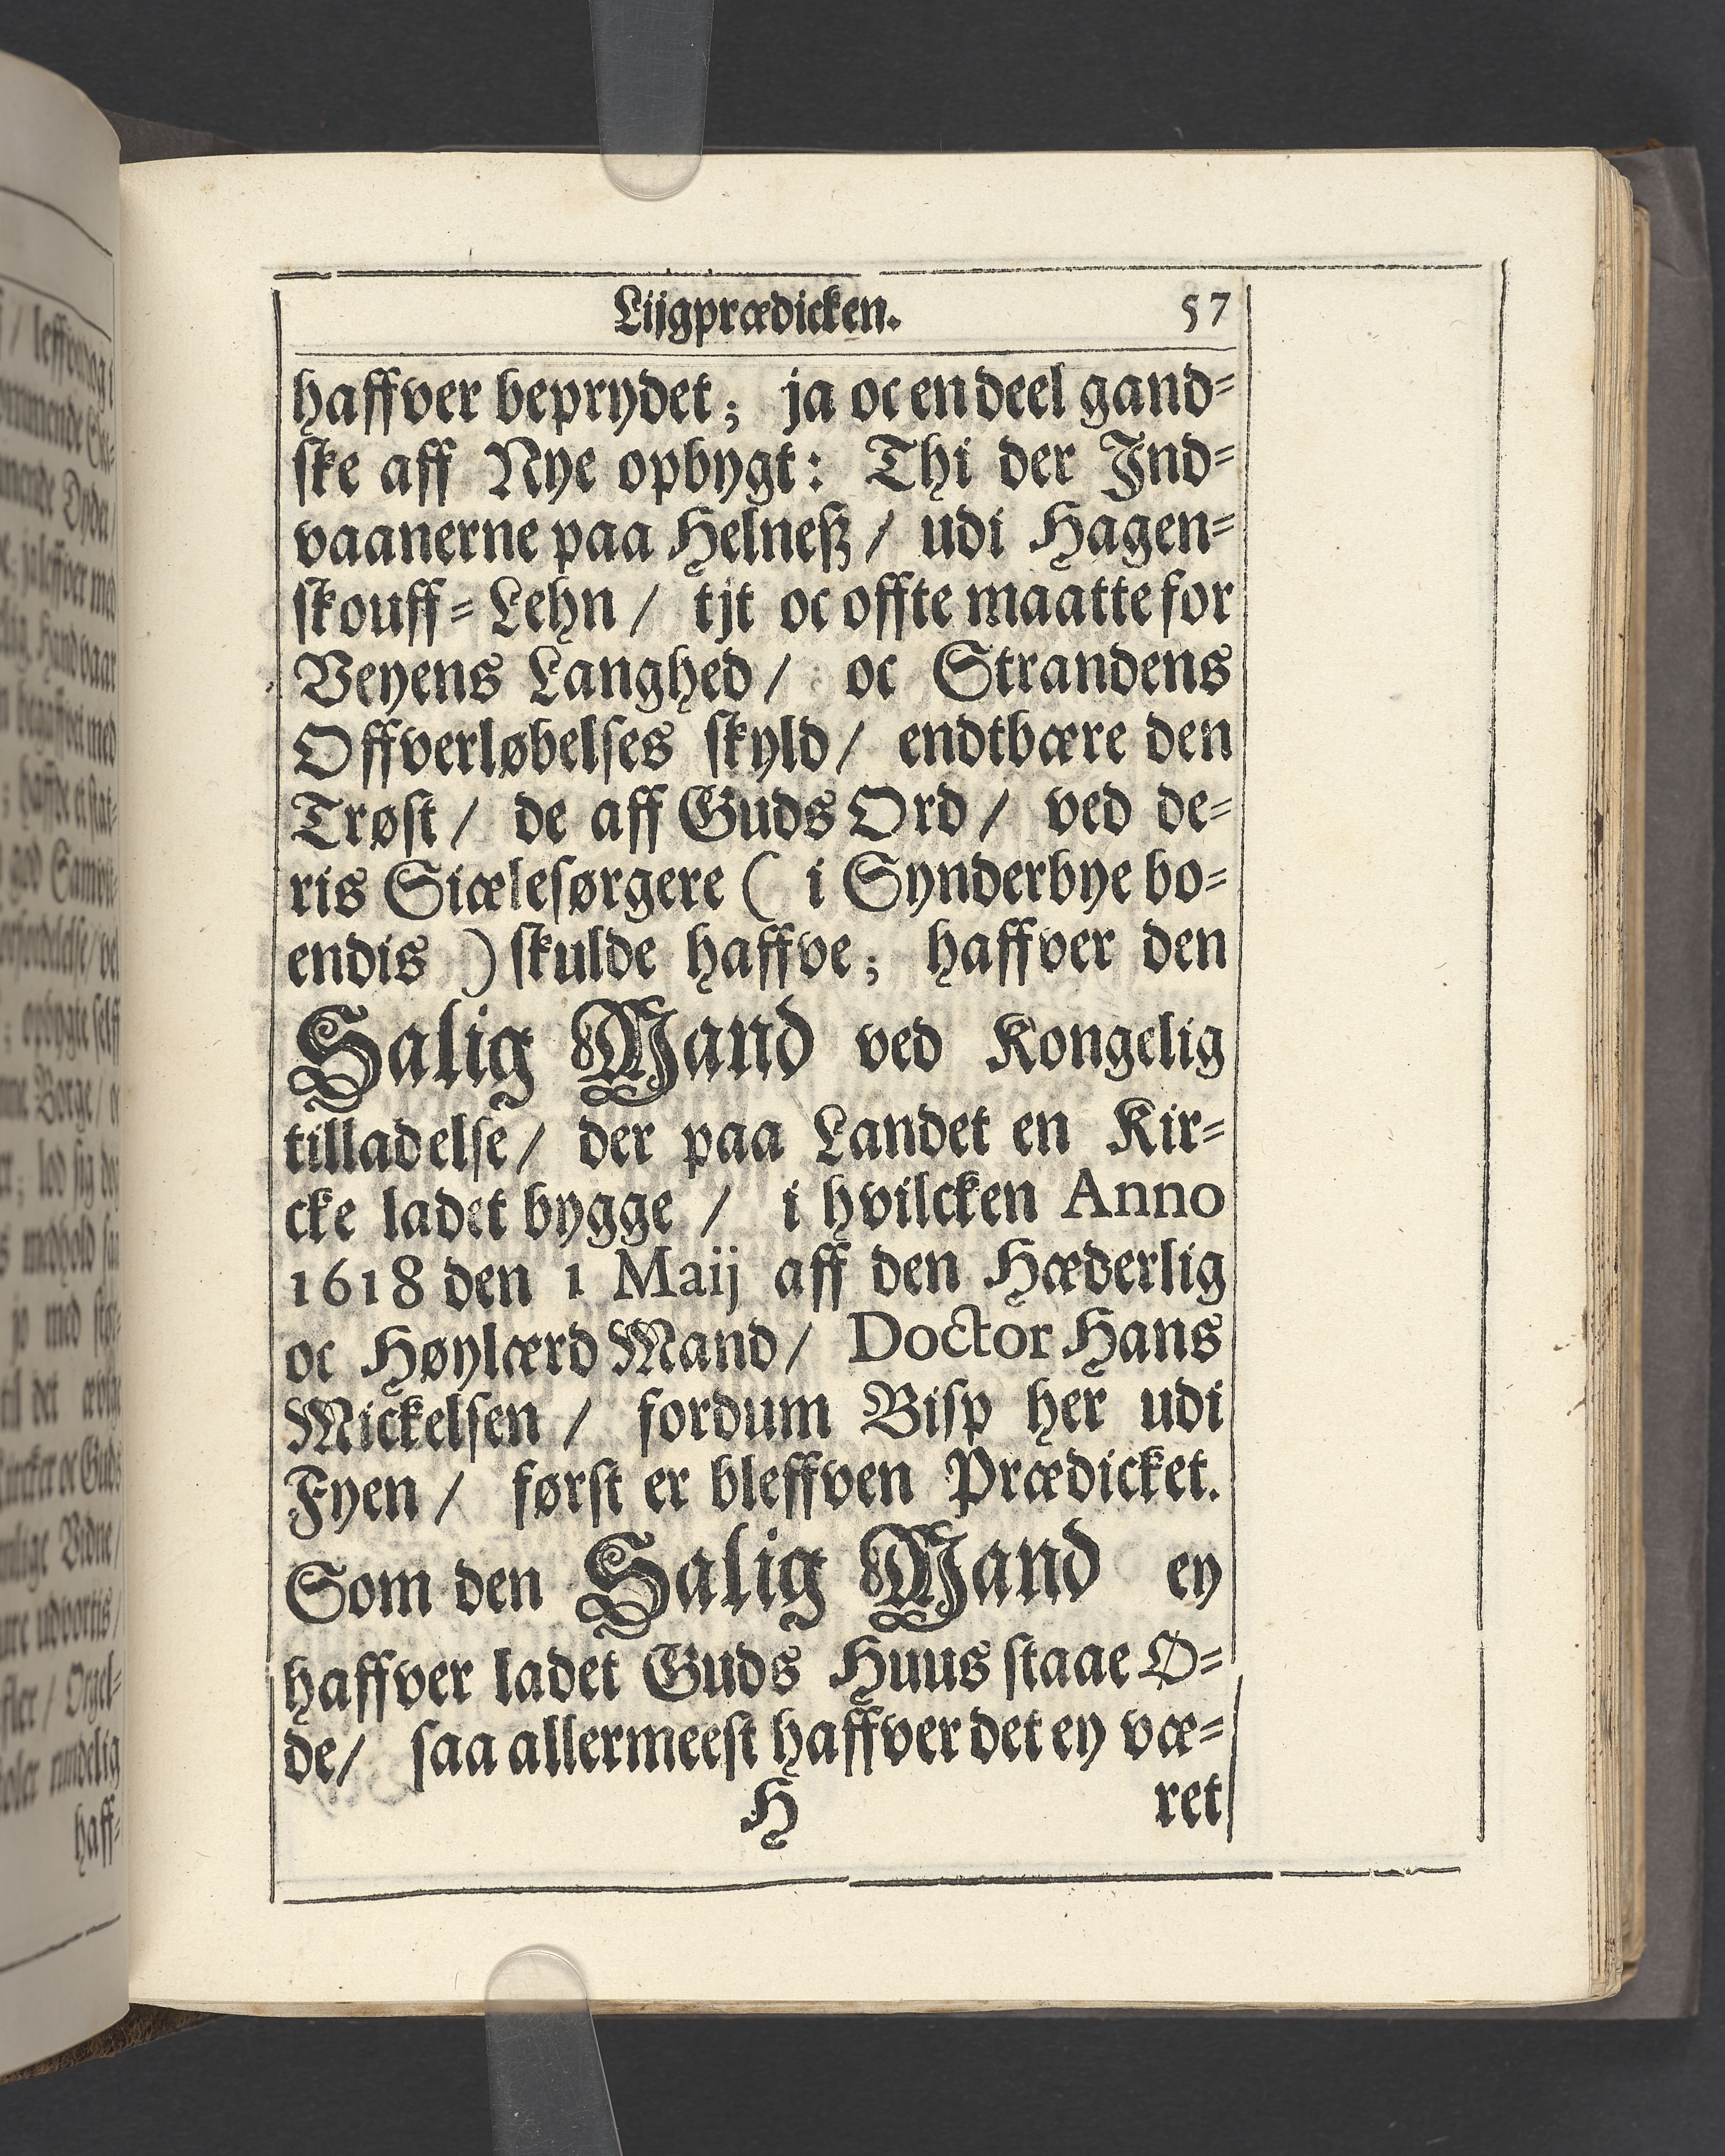 Lijgprædicken. 57
haffver beprydet; ja oc en deel gand⸗
ske aff Nye opbygt: Thi der Ind⸗
vaanerne paa Helneß / udi Hagen⸗
skouff⸗Lehn / tjt oc offte maatte for
Veyens Langhed / oc Strandens
Offverløbelses skyld / endtbære den
Trøst / de aff Guds Ord / ved de⸗
ris Siælesørgere ( i Synderbye bo⸗
endis ) skulde haffve; haffver den
Salig Mand ved Kongelig
tilladelse / der paa Landet en Kir⸗
cke ladet bygge / i hvilcken Anno
1618 den 1 Maij aff den Hæderlig
oc Høylærd Mand / Doctor Hans
Mickelsen / fordum Bisp her udi
Fyen / først er bleffven Prædicket.
Som den Salig Mand ey
haffver ladet Guds Huus staae Ø⸗
de / saa allermeest haffver det ey væ⸗
H ret